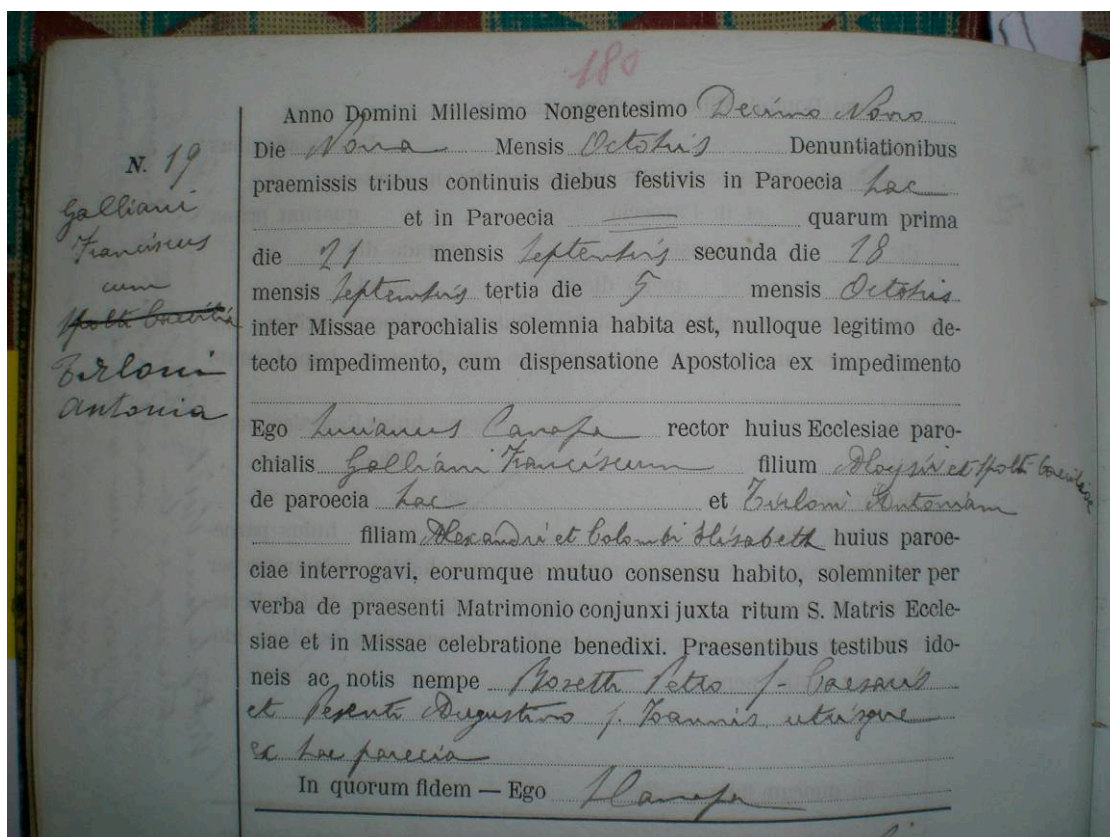 180
Anno Domini Millesimo Nongentesimo Decimo Nono
Die Nona Mensis Octobris Denuntiationibus
praemissis tribus continuis diebus festivis in Paroecia hac
et in Paroecia quarum prima
die 21 mensis Septembris secunda die 28
mensis Septembris tertia die 5 mensis Octobris
inter Missae parochialis solemnia habita est, nulloque legitimo de-
tecto impedimento, cum dispensatione Apostolica ex impedimento
Ego Lucianus Canapa rector huius Ecclesiae paro-
chialis Galliani Franciscum filium Aloysii et
de paroecia hac et Tirloni Antoniam
filiam Alexandri et Colombi Elisabeth huius paroe-
ciae interrogavi, eorumque mutuo consensu habito, solemniter per
verba de praesenti Matrimonio conjunxi juxta ritum S. Matris Eccle-
siae et in Missae celebratione benedixi. Praesentibus testibus ido-
neis ac notis nempe Petro f. Caesaris
et Pesenti Augustino f. Joannis utrisque
ex hac parecia
In quorum fidem — Ego
N. 19
Galliani
Franciscus
cum
Tirloni
Antonia